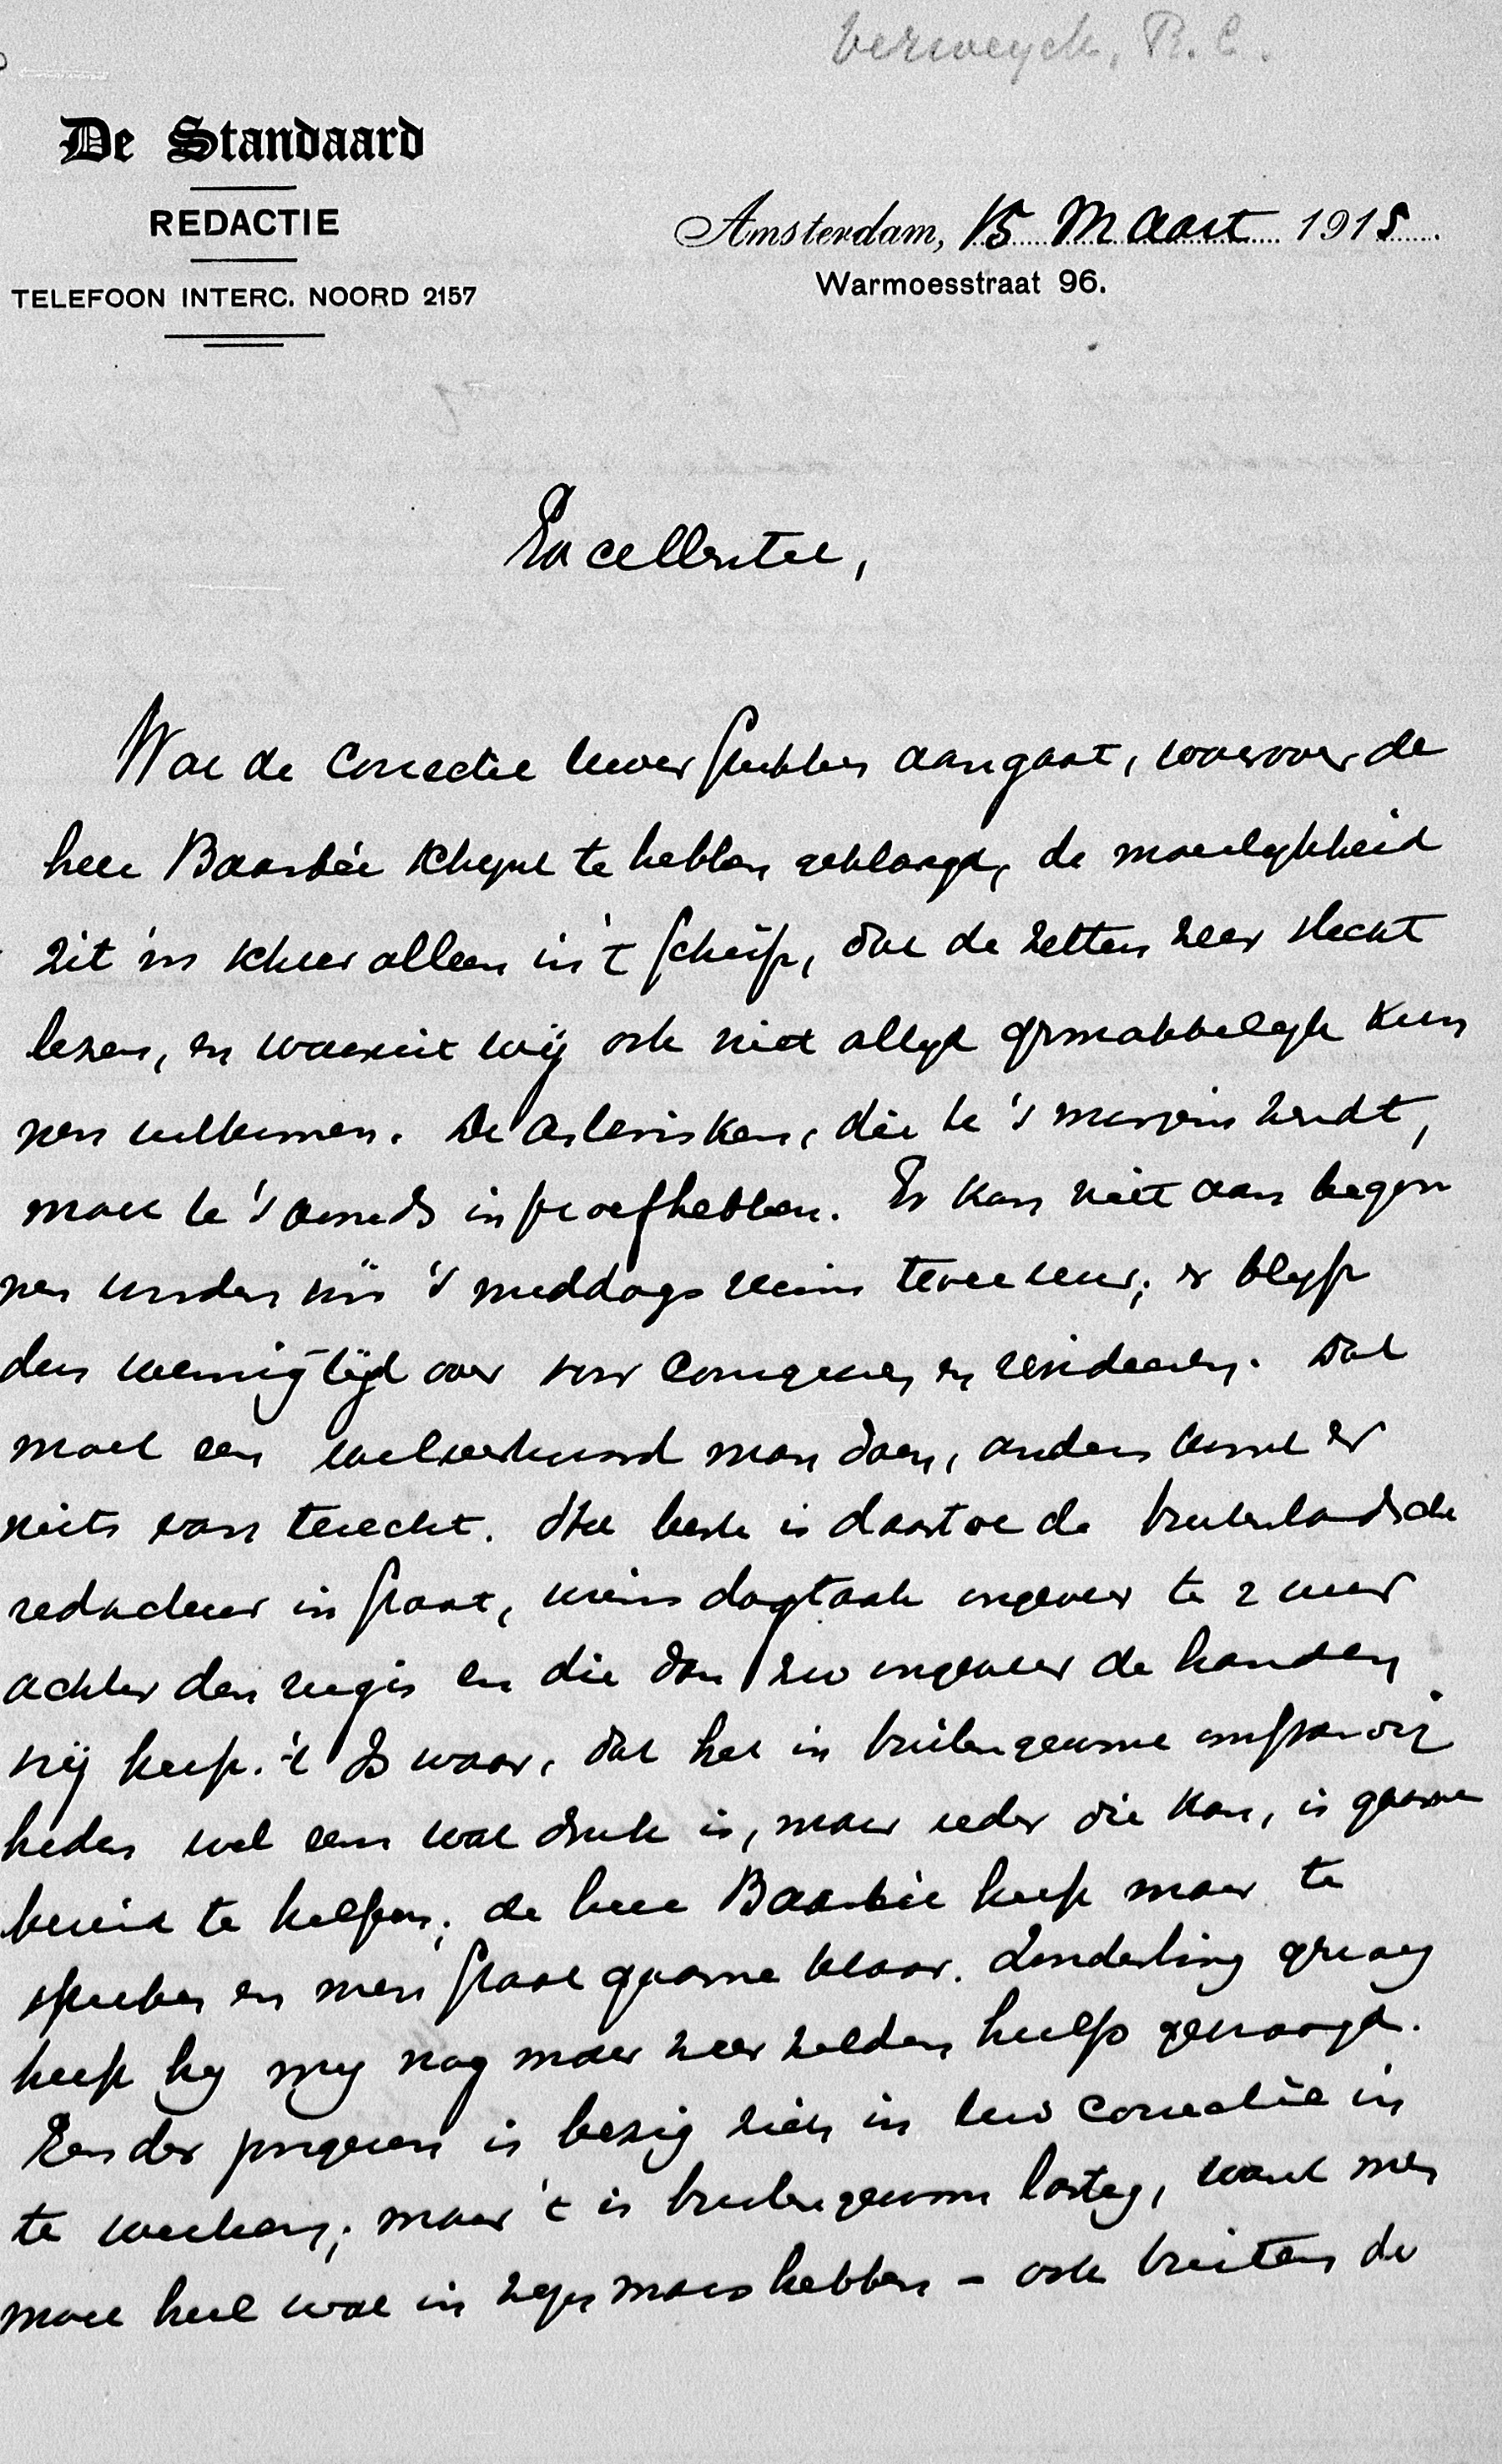 Verweyck, R.C.
De Standaard
REDACTIE
TELEFOON INTERC. NOORD 2157
Amsterdam, 15 Maart 1915.
Warmoesstraat 96.
Excellentie,
Wat de correctie uwer stukken aangaat, waarover de
heer Baarbée schynt te hebben geklaagd, de moeilykheid
zit 'm schier alleen in 't schrift, dat de zetters zeer slecht
lezen, en waaruit wij ook niet altyd gemakkelyk kun
nen uitkomen. De Asterisken, die Ue 's morgens zendt,
moet Ue 's avonds in proef hebben. Er kan niet aan begon
nen worden vóór 's middags ruim twee uur; er blyft
dus weinig tijd over voor corrigeeren en revideeren. Dat
moet een man doen, anders komt er
niets van terecht. Het beste is daartoe de buitenlandsche
redacteur in staat, wiens dagtaak ongeveer te 2 uur
achter den rug is en die dan zoo ongeveer de handen
vrij heeft. 't Is waar, dat het in buitengewone omstandig
heden wel eens wat druk is, maar ieder die kan, is gaarne
bereid te helpen; de heer Baarbée heeft maar te
spreken en men staat gaarne klaar. Zonderling genoeg
heeft hy my nog maar zeer zelden hulp gevraagd.
Een der jongeren is bezig zich in Uw correctie in
te werken; maar 't is buitengewoon lastig, want men
moet heel wat in zyn mars hebben – ook buiten de